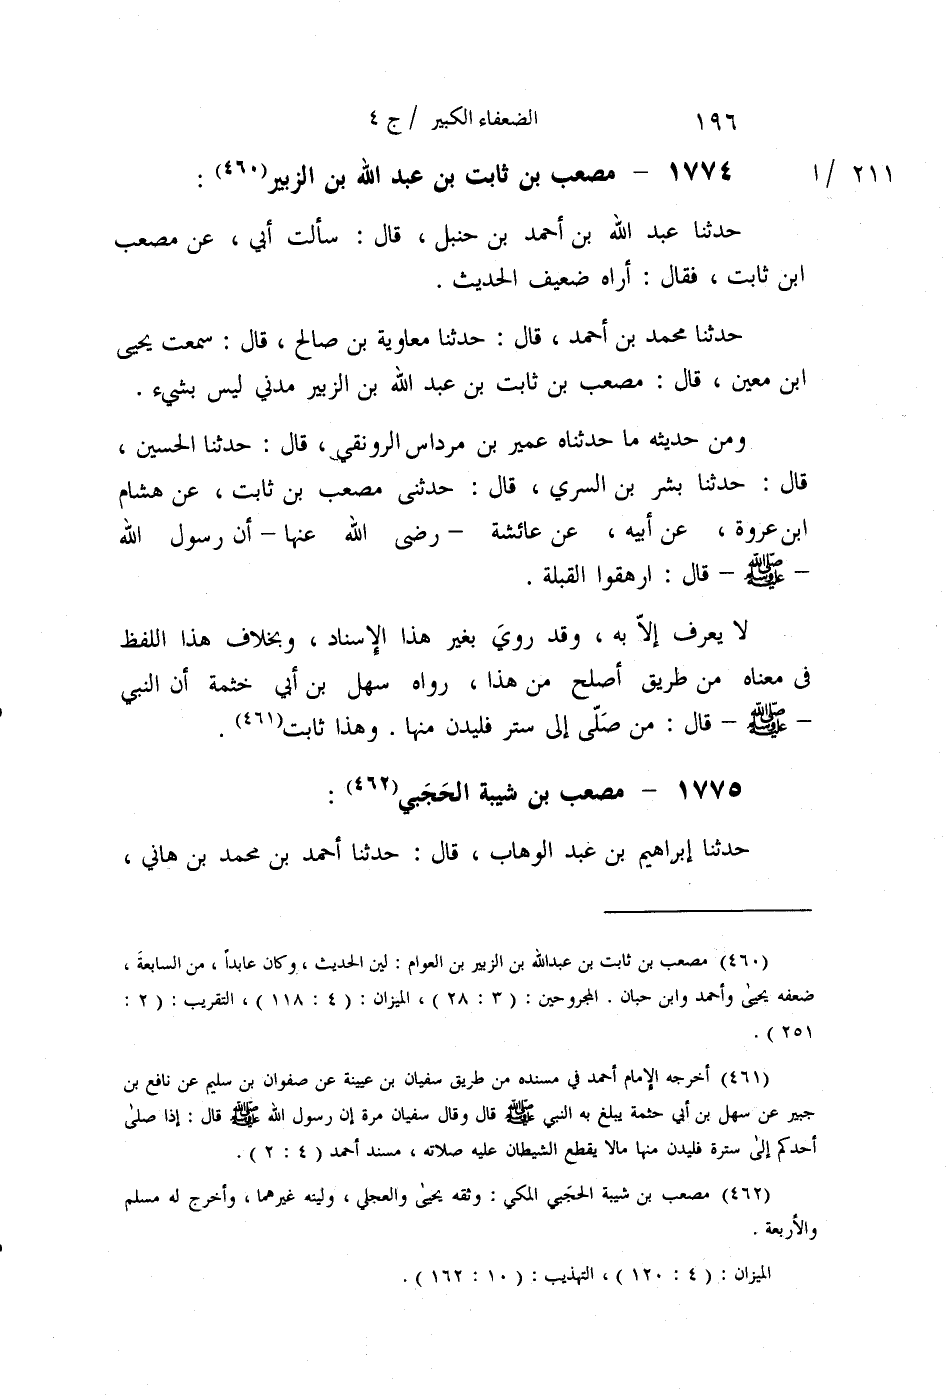 ١٩٦ الضعفاء الكبير / ج ٤
٢١١ / ١ ١٧٧٤ - مصعب بن ثابت بن عبد الله بن الزبير(٤٦٠) :
حدثنا عبد الله بن أحمد بن حنبل ، قال : سألت أبي ، عن مصعب
ابن ثابت ، فقال : أراه ضعيف الحديث .
حدثنا محمد بن أحمد ، قال : حدثنا معاوية بن صالح ، قال : سمعت يحيى
ابن معين ، قال : مصعب بن ثابت بن عبد الله بن الزبير مدني ليس بشيء .
ومن حديثه ما حدثناه عمير بن مرداس الرونقي ، قال : حدثنا الحسين ،
قال : حدثنا بشر بن السري ، قال : حدثنى مصعب بن ثابت ، عن هشام
ابن عروة ، عن أبيه ، عن عائشة - رضى الله عنها - أن رسول الله
- ﷺ - قال : ارهقوا القبلة .
لا يعرف إلاّ به ، وقد رويَ بغير هذا الإسناد ، وبخلاف هذا اللفظ
فى معناه من طريق أصلح من هذا ، رواه سهل بن أبي خثمة أن النبي
- ﷺ - قال : من صَلّى إلى ستر فليدن منها . وهذا ثابت(٤٦١) .
١٧٧٥ - مصعب بن شيبة الحَجَبي(٤٦٢) :
حدثنا إبراهيم بن عبد الوهاب ، قال : حدثنا أحمد بن محمد بن هاني ،
(٤٦٠) مصعب بن ثابت بن عبدالله بن الزبير بن العوام : لين الحديث ، وكان عابداً ، من السابعة ،
ضعفه يحيىٰ وأحمد وابن حبان . المجروحين : ( ٣ : ٢٨ ) ، الميزان : ( ٤ : ١١٨ ) ، التقريب : ( ٢ :
٢٥١ ) .
(٤٦١) أخرجه الإمام أحمد في مسنده من طريق سفيان بن عيينة عن صفوان بن سليم عن نافع بن
جبير عن سهل بن أبي حثمة يبلغ به النبي ﷺ قال وقال سفيان مرة إن رسول الله ﷺ قال : إذا صلىٰ
أحدكم إلىٰ سترة فليدن منها مالا يقطع الشيطان عليه صلاته ، مسند أحمد ( ٤ : ٢ ) .
(٤٦٢) مصعب بن شيبة الحجَبي المكي : وثقه يحيىٰ والعجلي ، ولينه غيرهما ، وأخرج له مسلم
والأربعة .
الميزان : ( ٤ : ١٢٠ ) ، التهذيب : ( ١٠ : ١٦٢ ) .